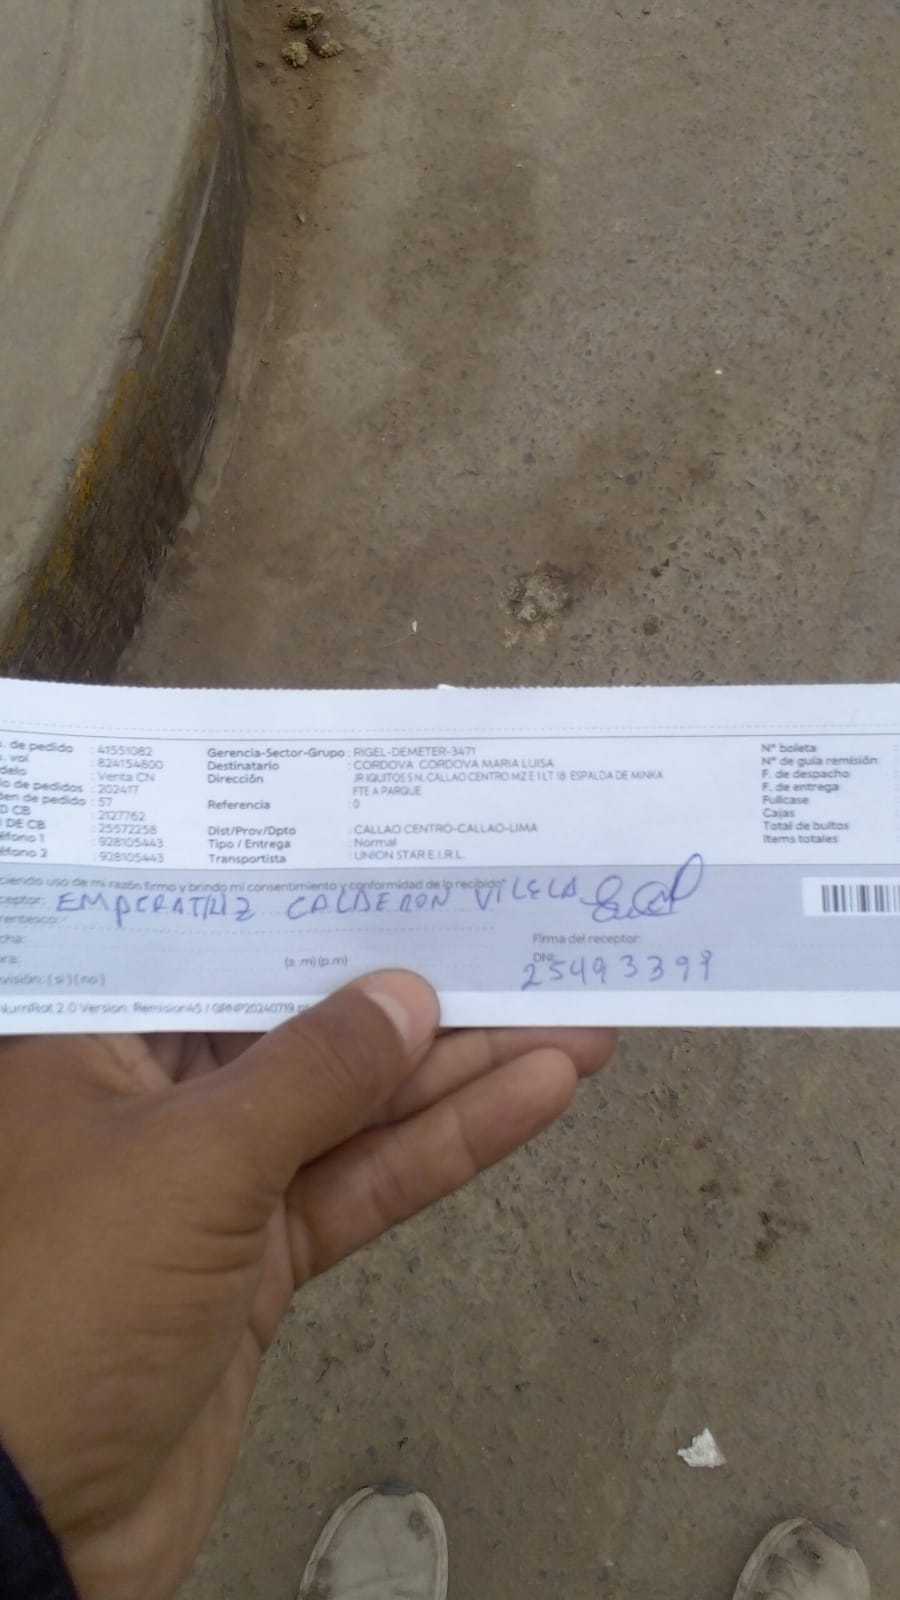 . de pedido : 41551082
. vol : 824154800
delo : Venta CN
o de pedidos : 202417
en de pedido : 57
D CB : 2127762
DE CB : 25572258
éfono 1 : 928105443
éfono 2 : 928105443
Gerencia-Sector-Grupo : RIGEL-DEMETER-3471
Destinatario : CORDOVA CORDOVA MARIA LUISA
Dirección : JR IQUITOS S N, CALLAO CENTRO MZ E 1 LT 18 ESPALDA DE MINKA
FTE A PARQUE
Referencia : 0
Dist/Prov/Dpto : CALLAO CENTRO-CALLAO-LIMA
Tipo / Entrega : Normal
Transportista : UNION STAR E.I.R.L.
N° boleta :
N° de guía remisión :
F. de despacho :
F. de entrega :
Fullcase :
Cajas :
Total de bultos :
Items totales :
ciendo uso de mi razón firmo y brindo mi consentimiento y conformidad de lo recibido"
ceptor: EMPERATRIZ CALDERON VILELA
rentesco:
cha:
ra: (a .m) (p.m)
visión: ( si ) ( no )
Firma del receptor:
DNI: 25493399
NumRot 2.0 Version: Remision45 / GRNP20240719